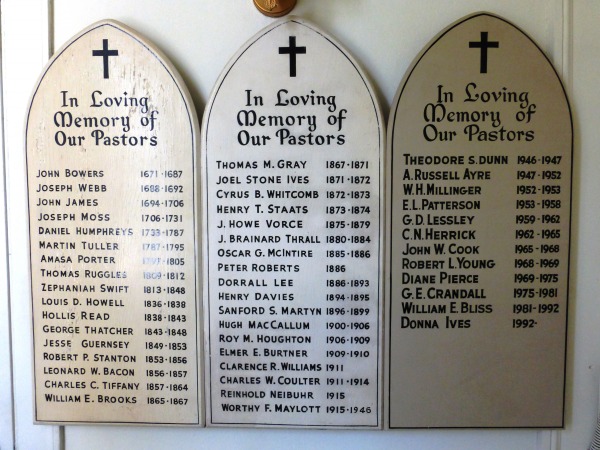 In Loving
Memory of
Our Pastors
JOHN BOWERS 1671-1687
JOSEPH WEBB 1688-1692
JOHN JAMES 1694-1706
JOSEPH MOSS 1706-1731
DANIEL HUMPHREYS 1733-1787
MARTIN TULLER 1787-1795
AMASA PORTER 1805
THOMAS RUGGLES 1809-1812
ZEPHANIAH SWIFT 1813-1848
LOUIS D. HOWELL 1836-1838
HOLLIS READ 1838-1843
GEORGE THATCHER 1843-1848
JESSE GUERNSEY 1849-1853
ROBERT P. STANTON 1853-1856
LEONARD W. BACON 1856-1857
CHARLES C. TIFFANY 1857-1864
WILLIAM E. BROOKS 1865-1867
In Loving
Memory of
Our Pastors
THOMAS M. GRAY 1867-1871
JOEL STONE IVES 1871-1872
CYRUS B. WHITCOMB 1872-1873
HENRY T. STAATS 1873-1874
J. HOWE VORCE 1875-1879
J. BRAINARD THRALL 1880-1884
OSCAR G. MCINTIRE 1885-1886
PETER ROBERTS 1886
DORRALL LEE 1886-1893
HENRY DAVIES 1894-1895
SANFORD S. MARTYN 1896-1899
HUGH MACCALLUM 1900-1906
ROY M. HOUGHTON 1906-1909
ELMER E. BURTNER 1909-1910
CLARENCE R. WILLIAMS 1911
CHARLES W. COULTER 1911-1914
REINHOLD NEIBUHR 1915
WORTHY F. MAYLOTT 1915-1946
In Loving
Memory of
Our Pastors
THEODORE S. DUNN 1946-1947
A. RUSSELL AYRE 1947-1952
W. H. MILLINGER 1952-1953
E. L. PATTERSON 1953-1958
G. D. LESSLEY 1959-1962
C. N. HERRICK 1962-1965
JOHN W. COOK 1965-1968
ROBERT L. YOUNG 1968-1969
DIANE PIERCE 1969-1975
G. E. CRANDALL 1975-1981
WILLIAM E. BLISS 1981-1992
DONNA IVES 1992-